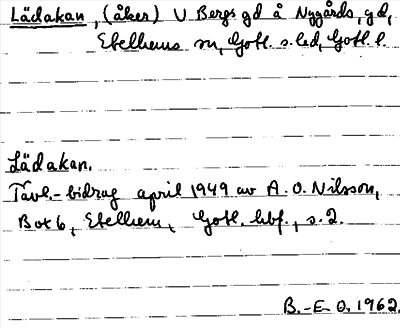 Lädakan, (åker) V Bergs gd å Nygårds, gd,
Etelhems sn, Gotl. s. hd, Gotl. l.
Lädakan.
Tävl.-bidrag april 1949 av A. O. Nilsson,
Botb, Etelhem, Gotl. hbf., s. 2.
B.-E. O. 1962.